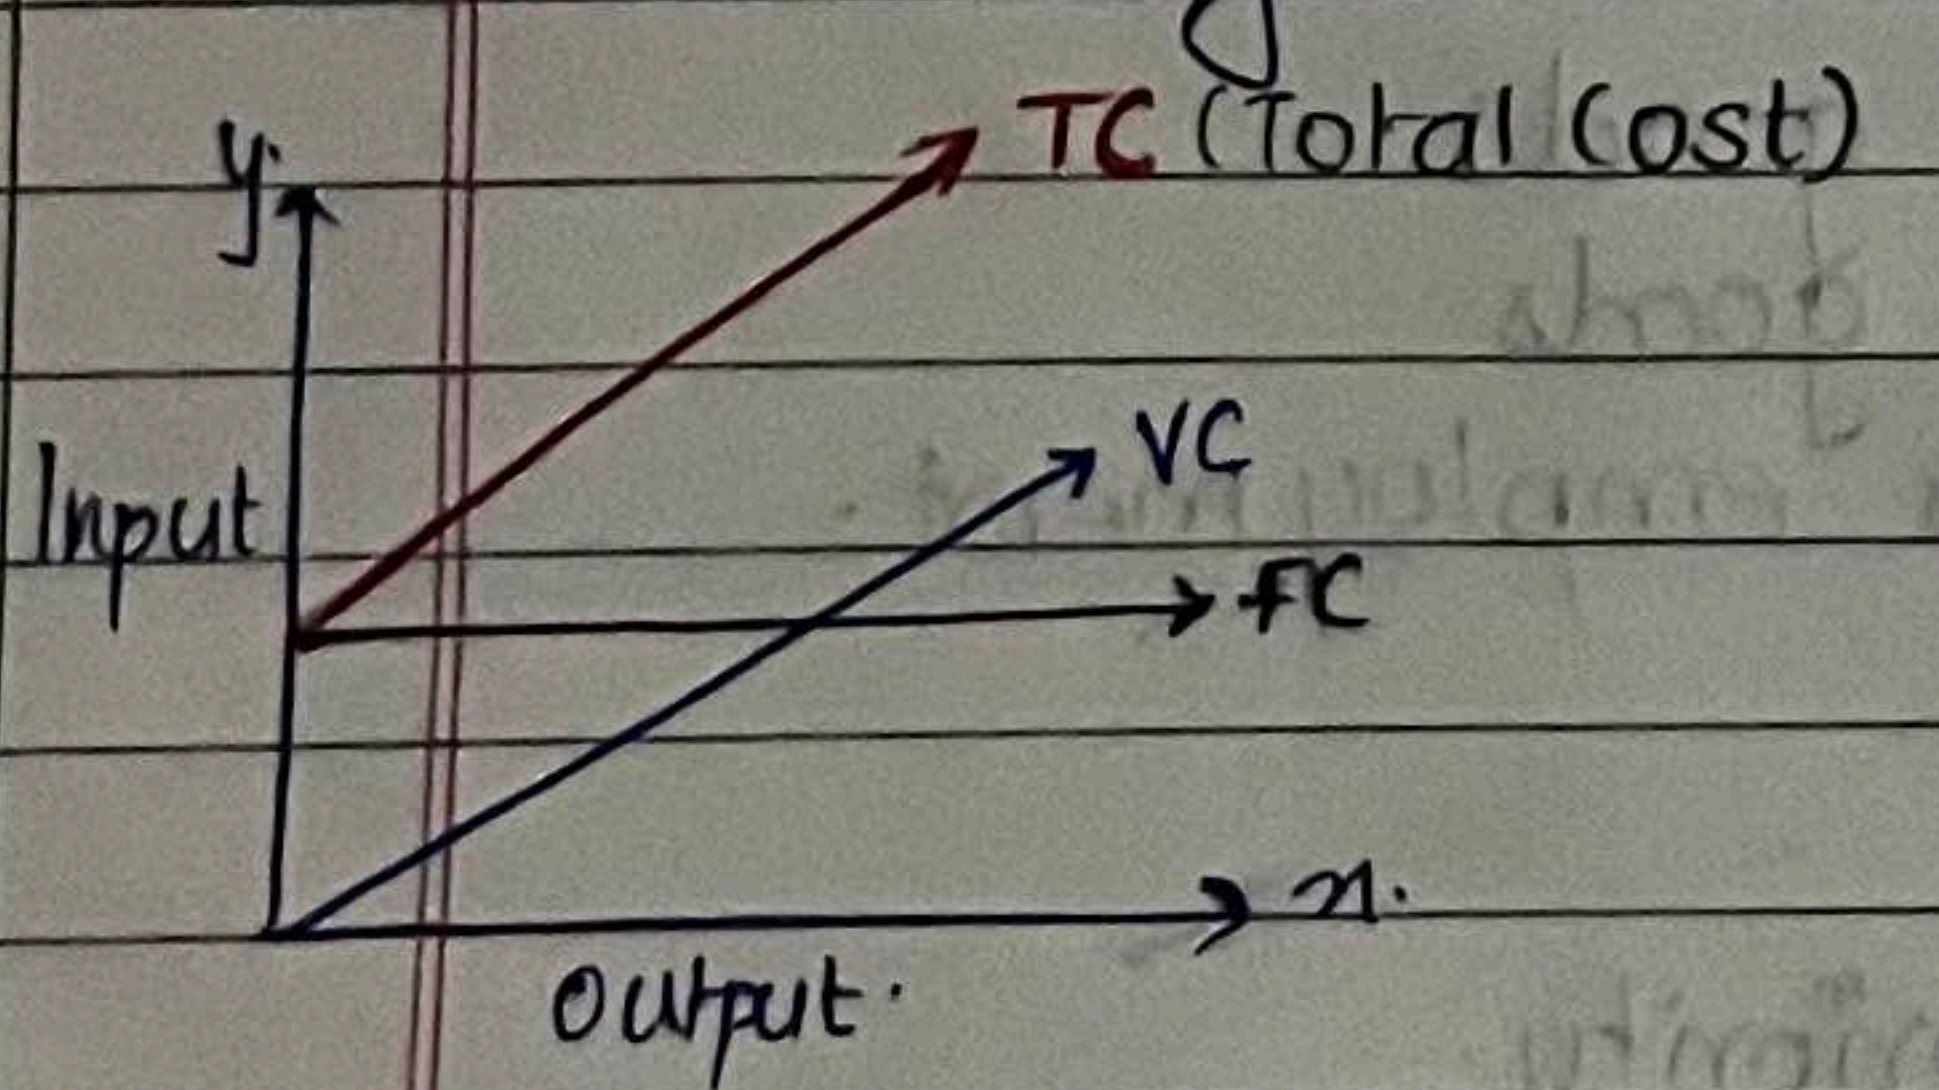 TC (Total Cost)
y.
VC
Input
FC
x.
Output.